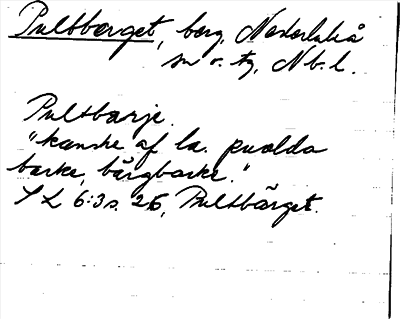 Pultberget, berg, Nederluleå
sn o. tg, Nb. l.
Pultbarje.
"kanske af la. puolda
barke, bärgbacke."
SL 6:3 s. 26, Pultbärget.